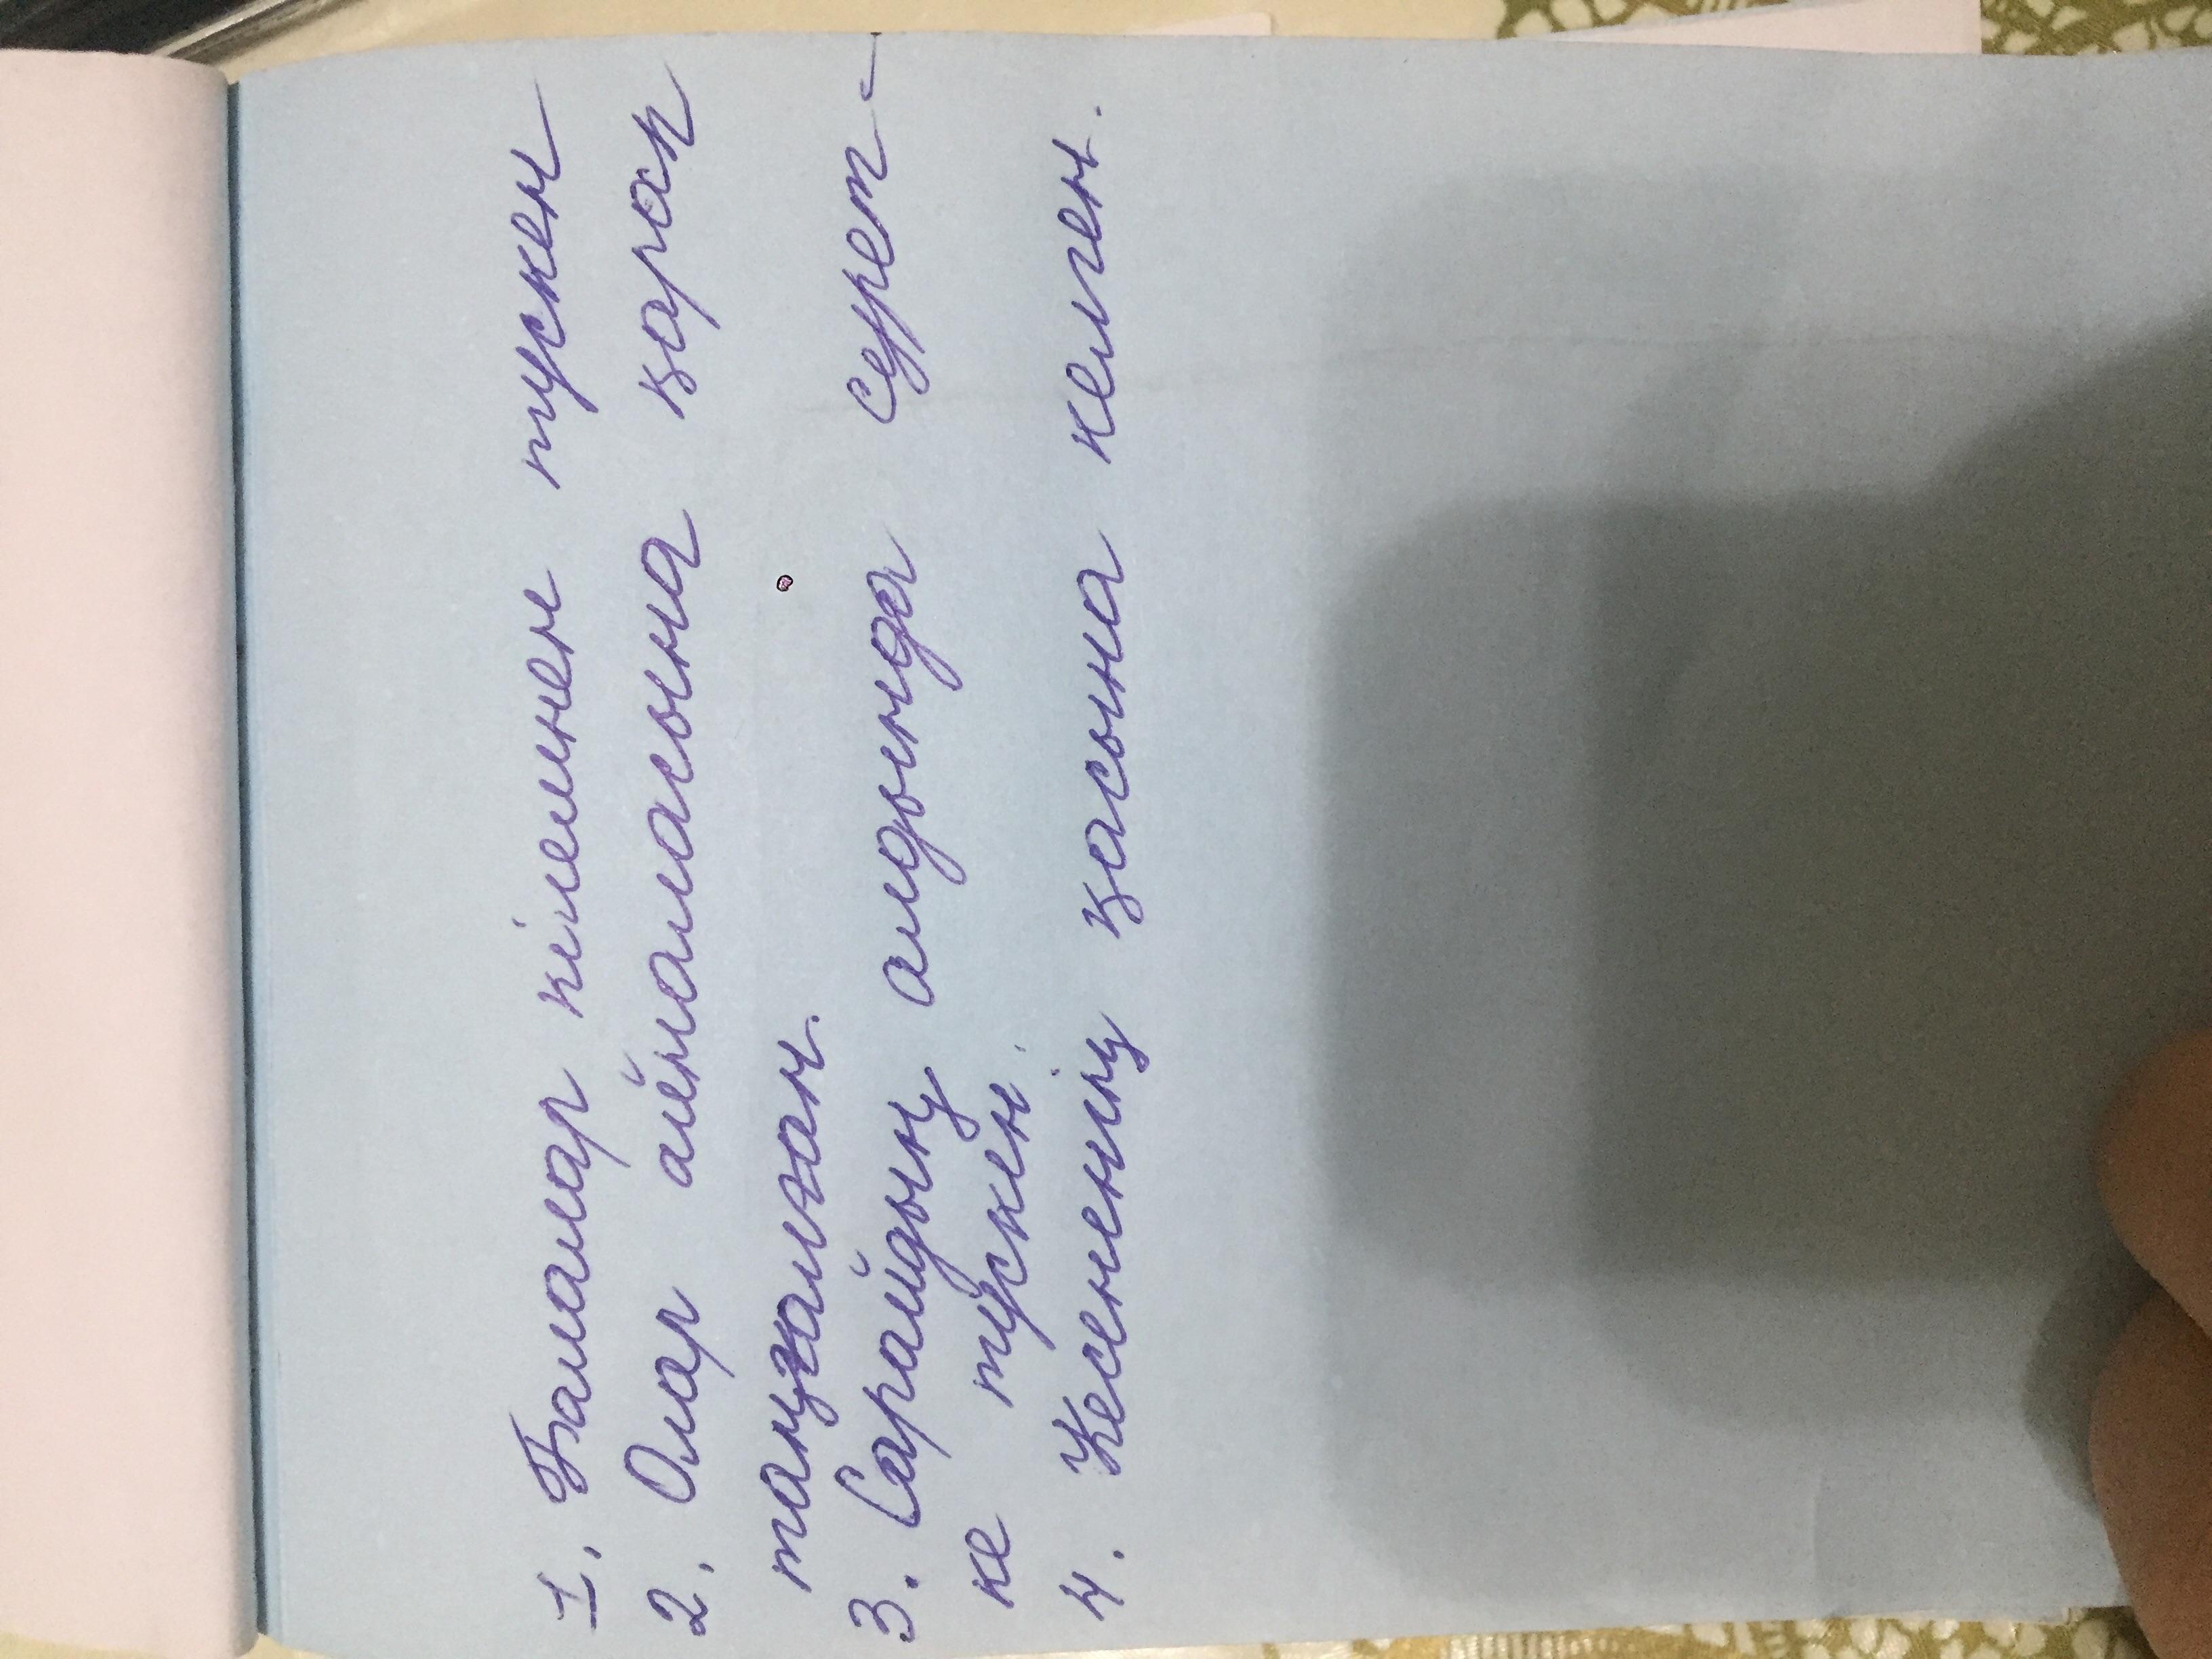 1. Балалар кілемнен түскен
2. Олар айналасына қарап
таңғалған.
3. Сарайдың алдында сурет-
ке түскен.
4. Кесененің қасына келген.